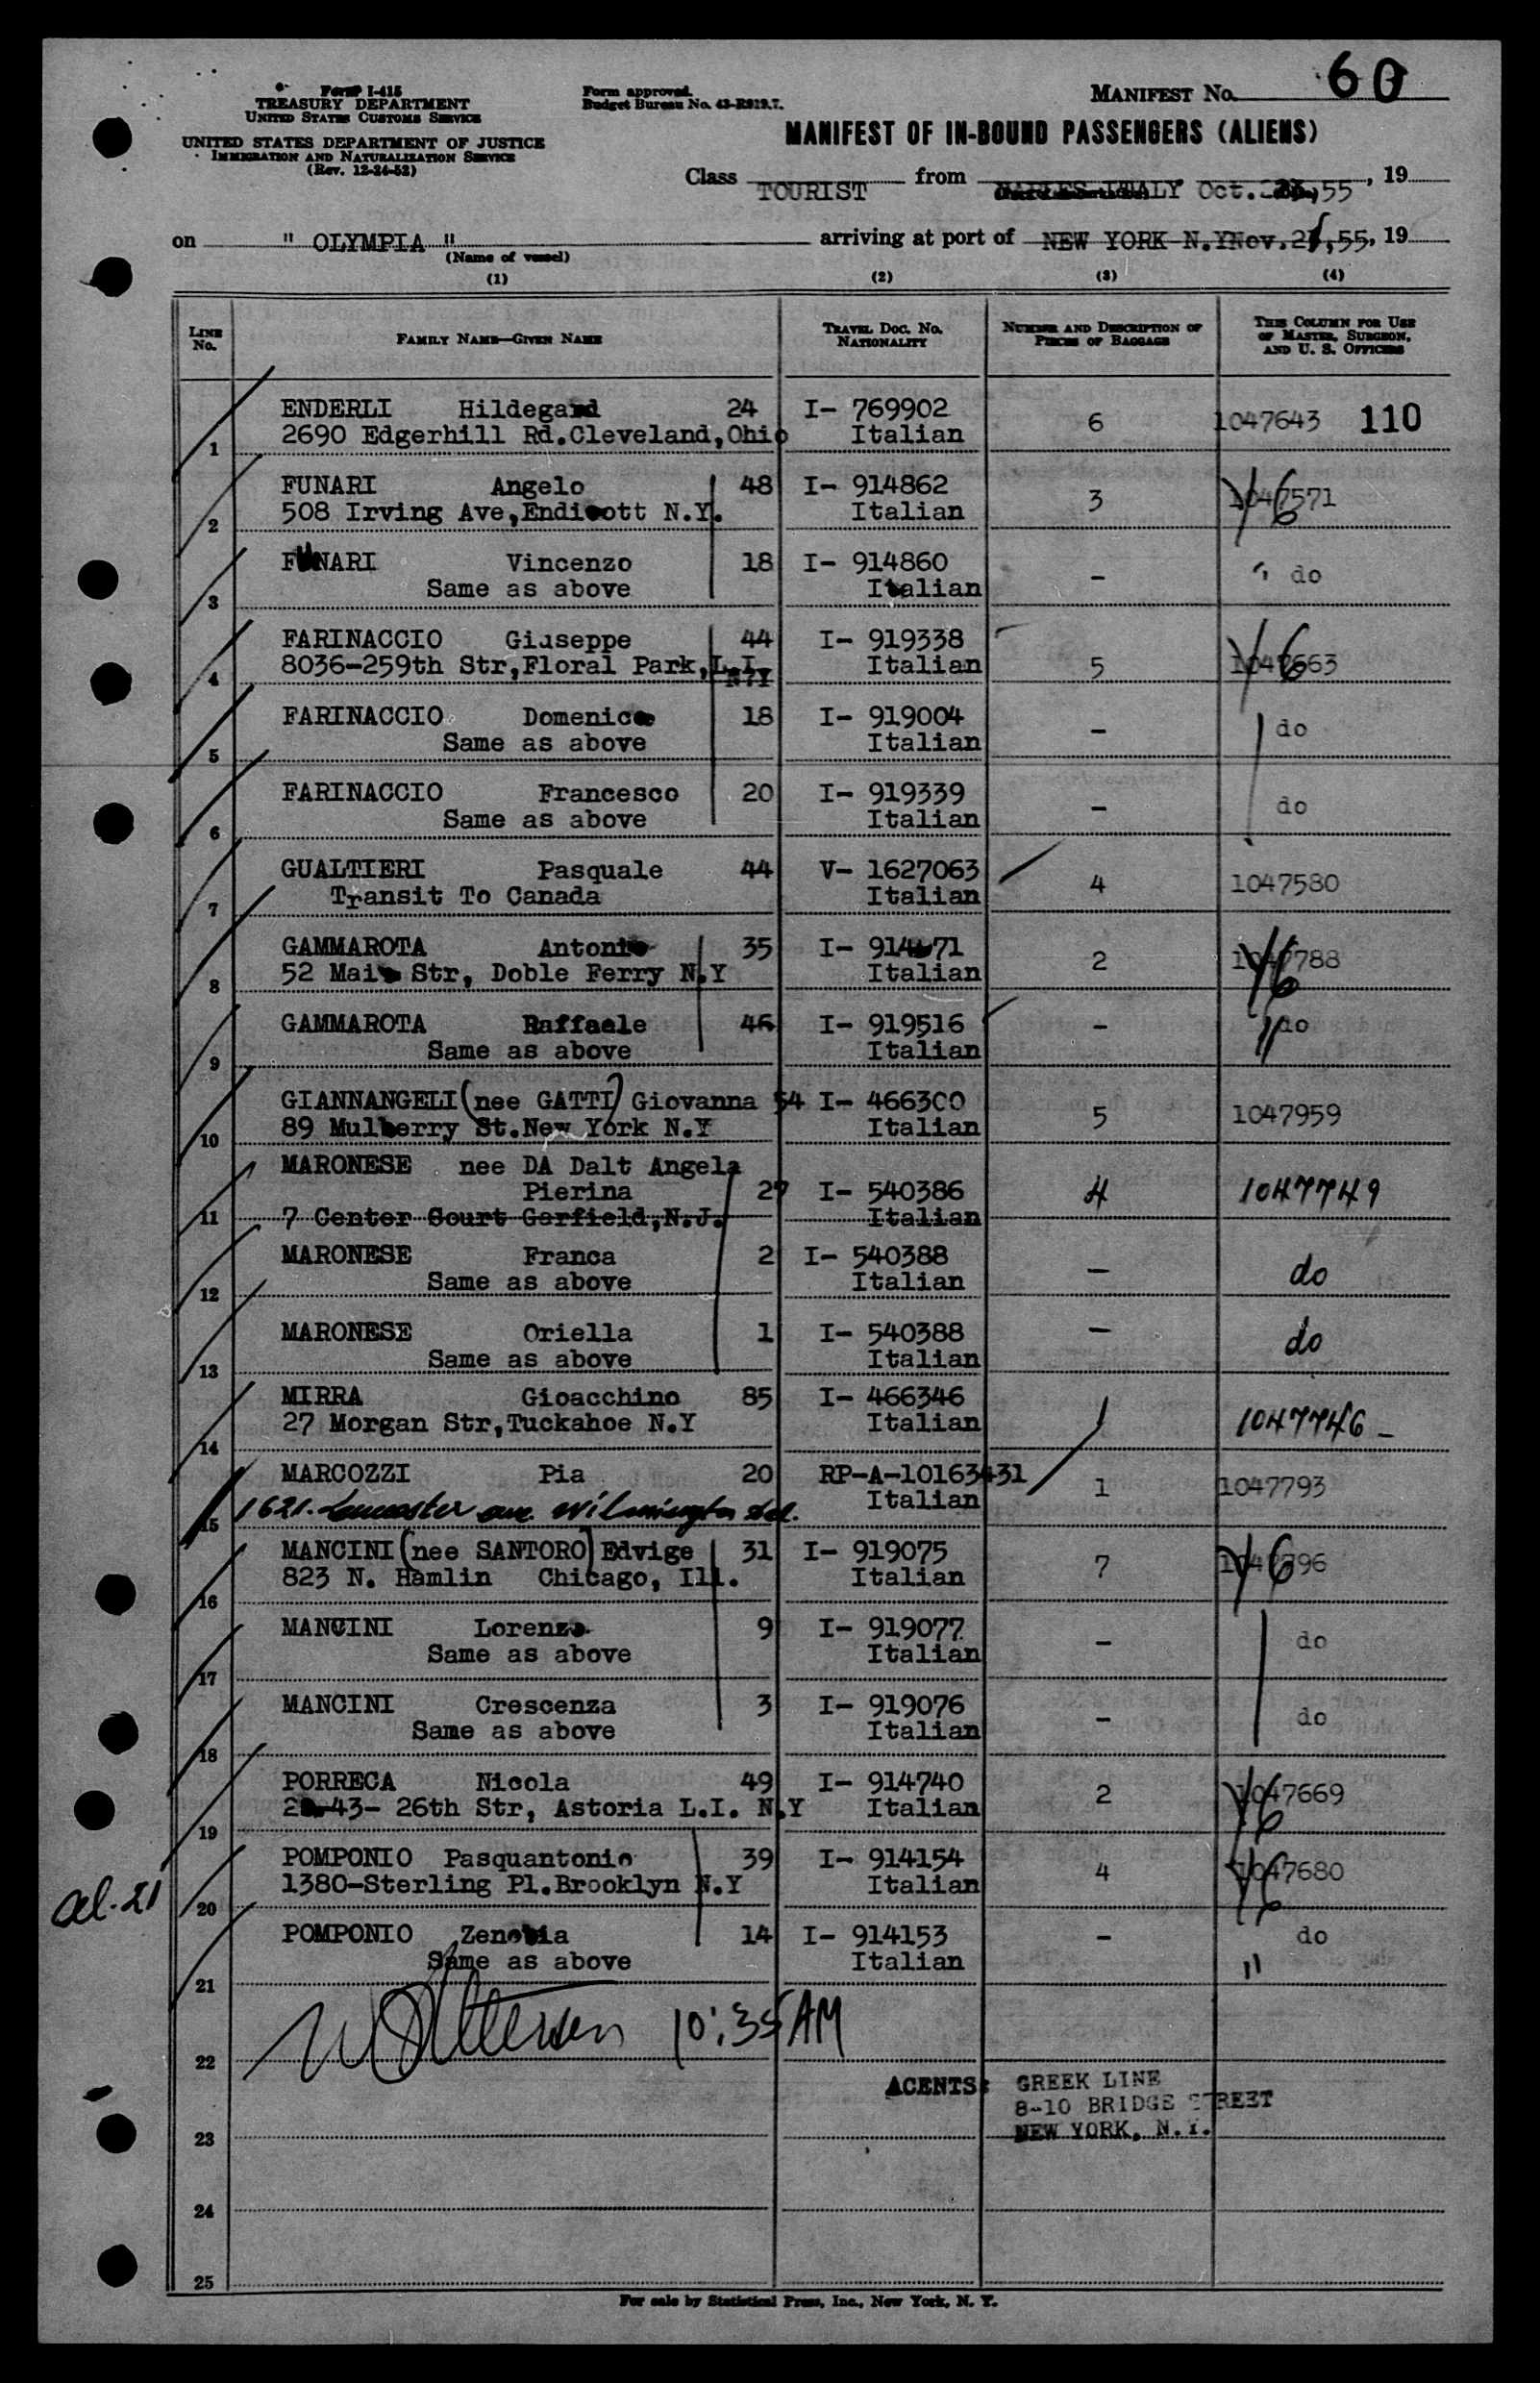 Form I-415
TREASURY DEPARTMENT
UNITED STATES CUSTOMS SERVICE
UNITED STATES DEPARTMENT OF JUSTICE
IMMIGRATION AND NATURALIZATION SERVICE
(Rev. 12-24-52)
Form approved.
Budget Bureau No. 43-R919.7.
MANIFEST No. 60
MANIFEST OF IN-BOUND PASSENGERS (ALIENS)
Class TOURIST from NAPLES ITALY Oct. 55, 19
on " OLYMPIA " arriving at port of NEW YORK N.Y Nov. 55, 19
(Name of vessel)
(1) (2) (3) (4)
LINE No. FAMILY NAME—GIVEN NAME TRAVEL DOC. NO. NATIONALITY NUMBER AND DESCRIPTION OF PIECES OF BAGGAGE THIS COLUMN FOR USE OF MASTER, SURGEON, AND U. S. OFFICERS
ENDERLI Hildegard 24 I- 769902 6 1047643 110
1 2690 Edgerhill Rd.Cleveland,Ohio Italian
FUNARI Angelo 48 I- 914862 3 1047571 V6
2 508 Irving Ave,Endicott N.Y. Italian
FUNARI Vincenzo 18 I- 914860 - " do
3 Same as above Italian
FARINACCIO Giuseppe 44 I- 919338 5 1047663 V6
4 8036-259th Str,Floral Park,L.I. N.Y Italian
FARINACCIO Domenico 18 I- 919004 - do
5 Same as above Italian
FARINACCIO Francesco 20 I- 919339 - do
6 Same as above Italian
GUALTIERI Pasquale 44 V- 1627063 4 1047580
7 Transit To Canada Italian
GAMMAROTA Antonio 35 I- 2 1047788 V6
8 52 Main Str, Doble Ferry N.Y Italian
GAMMAROTA Raffaele 46 I- 919516 - " do
9 Same as above Italian
GIANNANGELI (nee GATTI) Giovanna 54 I- 466300 5 1047959
10 89 Mulberry St.New York N.Y Italian
MARONESE nee DA Dalt Angela
Pierina 27 I- 540386 4 1047749
11 7 Center Court Garfield,N.J. Italian
MARONESE Franca 2 I- 540388 - do
12 Same as above Italian
MARONESE Oriella 1 I- 540388 - do
13 Same as above Italian
MIRRA Gioacchino 85 I- 466346 1 1047746 -
14 27 Morgan Str,Tuckahoe N.Y Italian
MARCOZZI Pia 20 RP-A-10163431 1 1047793
15 1621. Lancaster ave. Wilmington Del. Italian
MANCINI (nee SANTORO) Edvige 31 I- 919075 7 1047796 V6
16 823 N. Hamlin Chicago, Ill. Italian
MANCINI Lorenzo 9 I- 919077 - do
17 Same as above Italian
MANCINI Crescenza 3 I- 919076 - do
18 Same as above Italian
PORRECA Nicola 49 I- 914740 2 1047669 V6
19 43- 26th Str, Astoria L.I. N.Y Italian
POMPONIO Pasquantonio 39 I- 914154 4 1047680 V6
20 1380-Sterling Pl.Brooklyn N.Y Italian
POMPONIO Zenobia 14 I- 914153 - do
21 Same as above Italian "
22 10:35 AM
AGENTS: GREEK LINE
8-10 BRIDGE STREET
23 NEW YORK, N.Y.
24
25
For sale by Statistical Press, Inc., New York, N. Y.